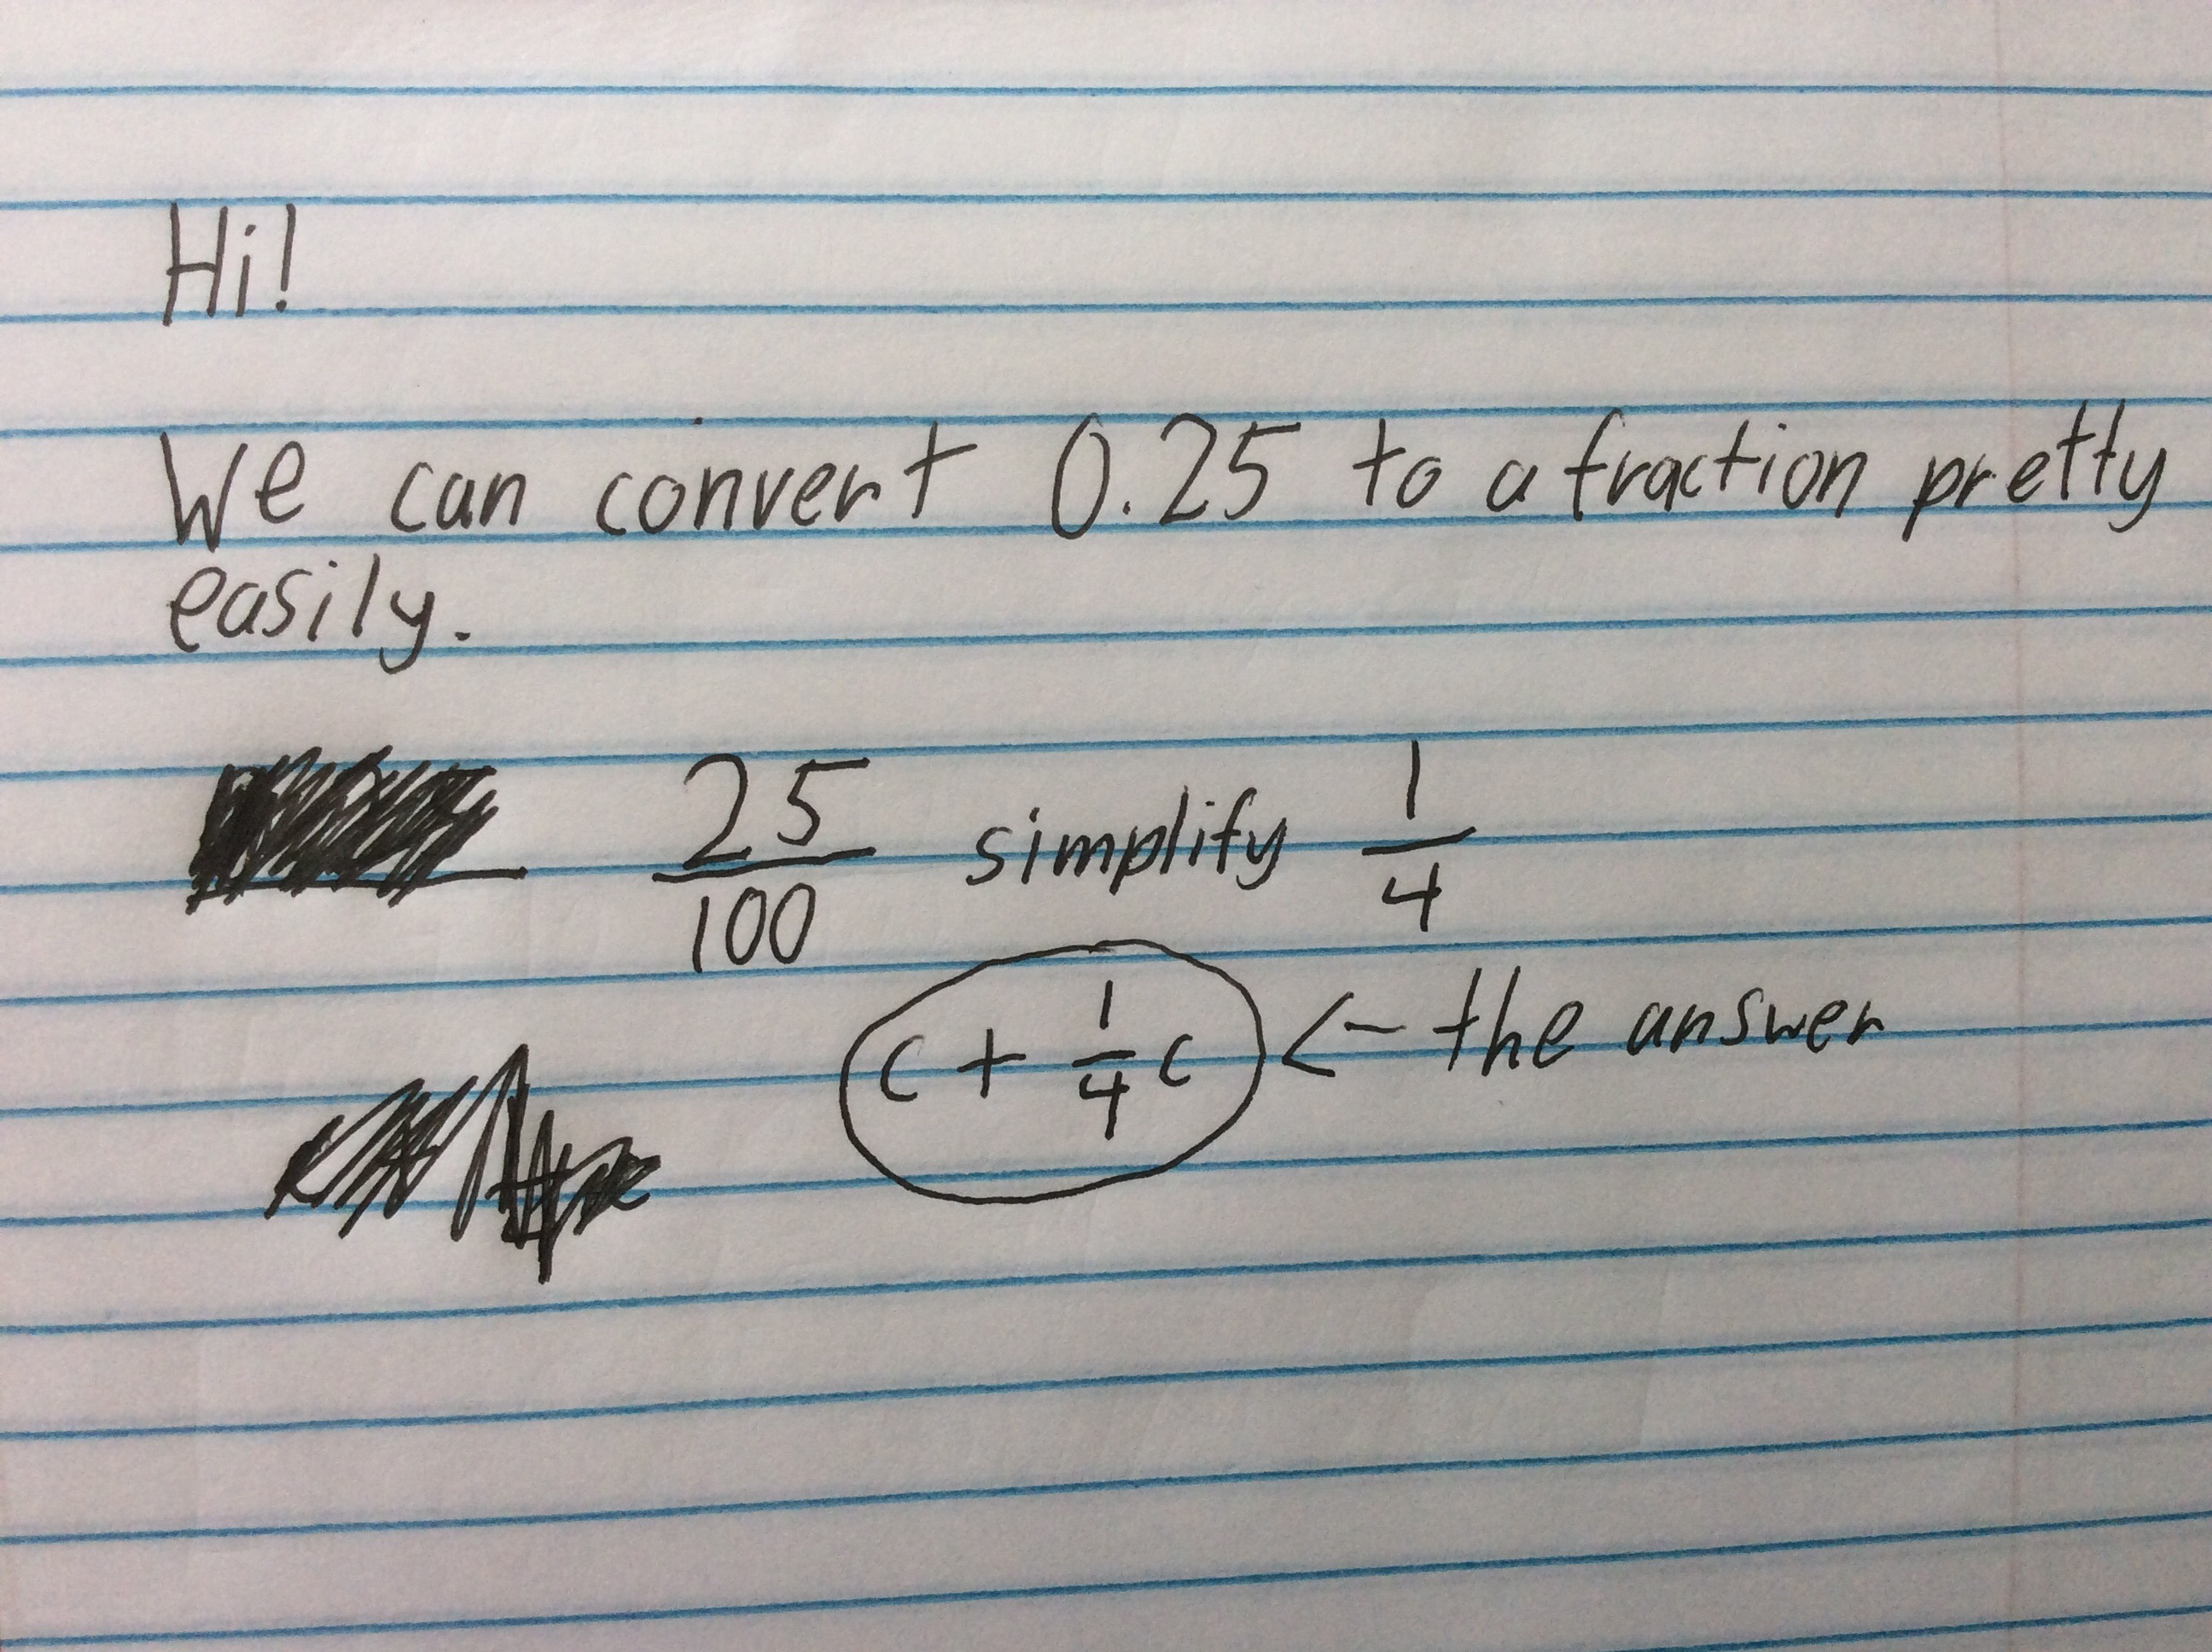 Hi!
We can convert 0.25 to a fraction pretty
easily.
25/100 simplify 1/4
c + 1/4 c <- the answer